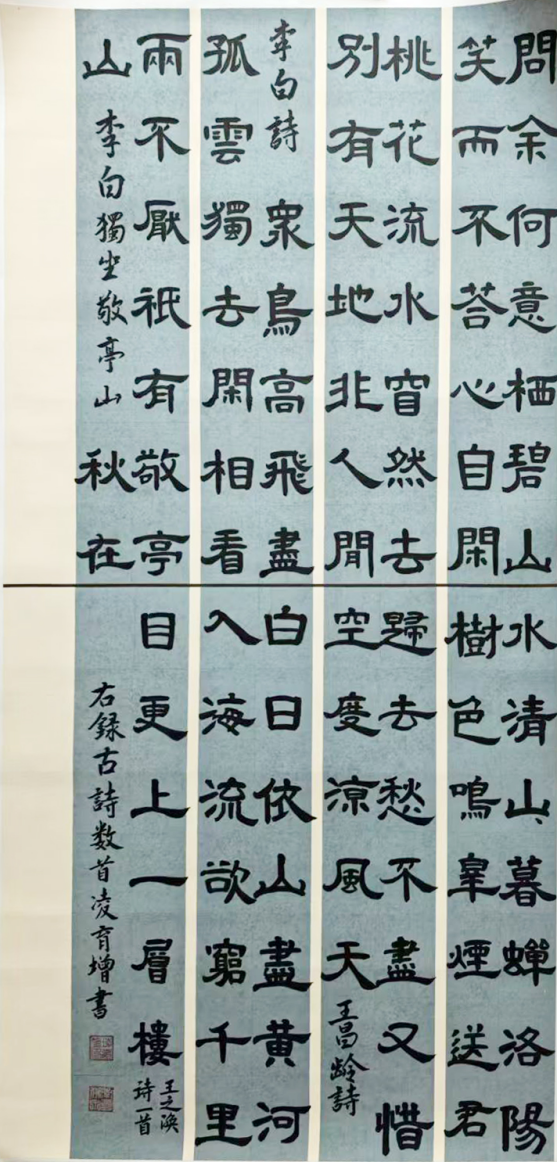 問余何意栖碧山
笑而不荅心自閑
桃花流水窅然去
别有天地非人間
李白詩 衆鳥高飛盡
孤雲獨去閑相看
兩不厭祇有敬亭
山 李白獨坐敬亭山 秋在
水清山暮蟬洛陽
樹色鳴皋煙送君
歸去愁不盡又惜
空度涼風天 王昌齡詩
白日依山盡黄河
入海流欲窮千里
目更上一層樓 王之渙
詩一首
右録古詩数首凌育增書